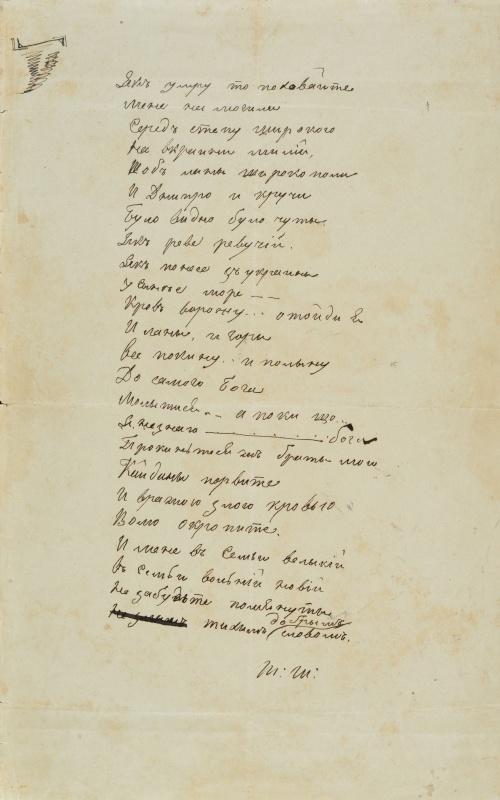 Якъ умру то поховайте
Мене на могили
Середъ степу широкого
На вкраини милій,
Щобъ ланы широкополи
И Днипро и кручи
Було видно було чуты
Якъ реве ревучій.
Якъ понесе зъ украины
У синье море
Кровъ ворожу... отойди я
И ланы, и горы
Все покину.. и полыну
До самого бога
Молытися.. а поки що..
Я незнаю ........ бога
Поховайте
Кайданы порвите
И вражою злою кровью
Волю окропите.
И мене въ семьи великій
Въ семьи вольній новій
Не забудьте помянуты
тихимъ добрымъ словомъ.
Т: Ш: